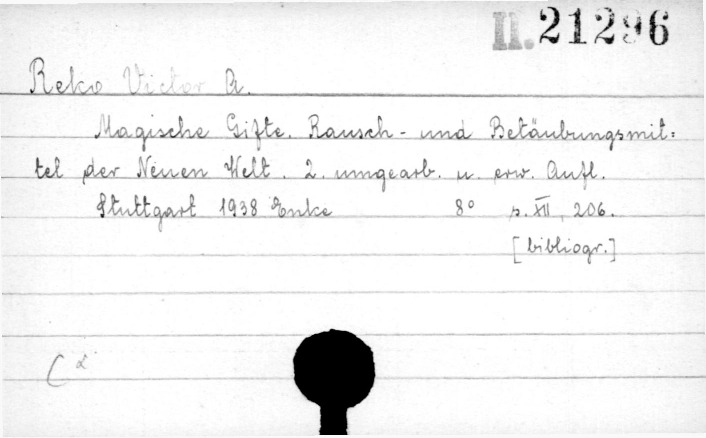 II. 21296
Reko Victor A.
Magische Gifte. Rausch- und Betäubungsmit=
tel der Neuen Welt. 2. umgearb. u. erw. Aufl.
Stuttgart 1938 Enke 8° s. XII, 206.
[bibliogr.]